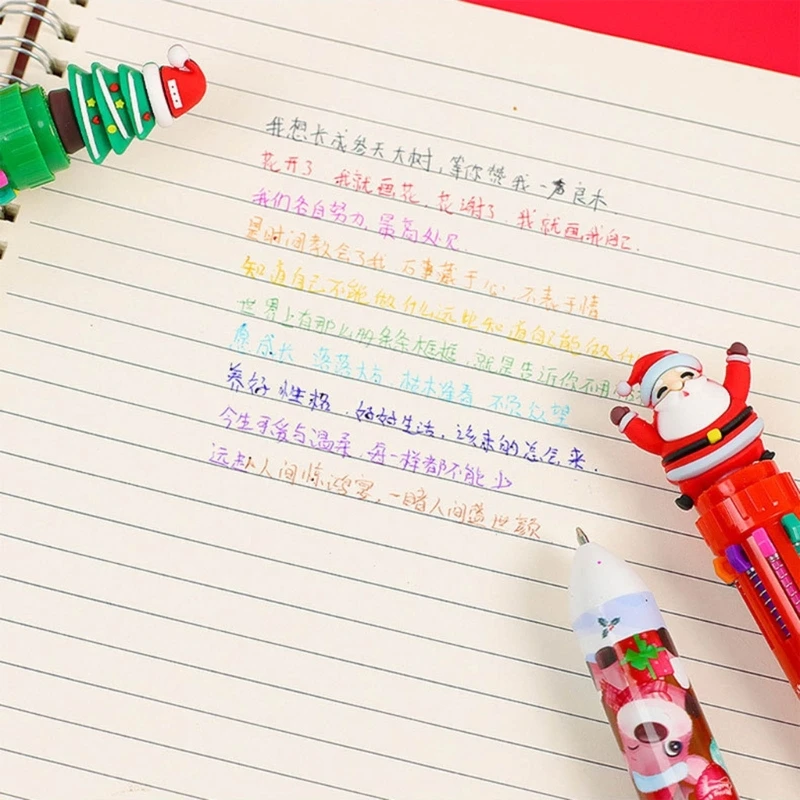 我想长成参天大树，等你赞我一声良木
花开了 我就画花，花谢了，我就画我自己.
我们各自努力，最高处见
是时间教会了我 万事藏于心，不表于情
知道自己不能做什么远比知道自己能做什
世界上有那么的条条框框，就是告诉你不用
愿成长 落落大方，枯木逢春 不负众望
养好性格，好好生活，该来的总会来.
今生可爱与温柔，每一样都不能少
远赴人间惊鸿宴，一睹人间盛世颜